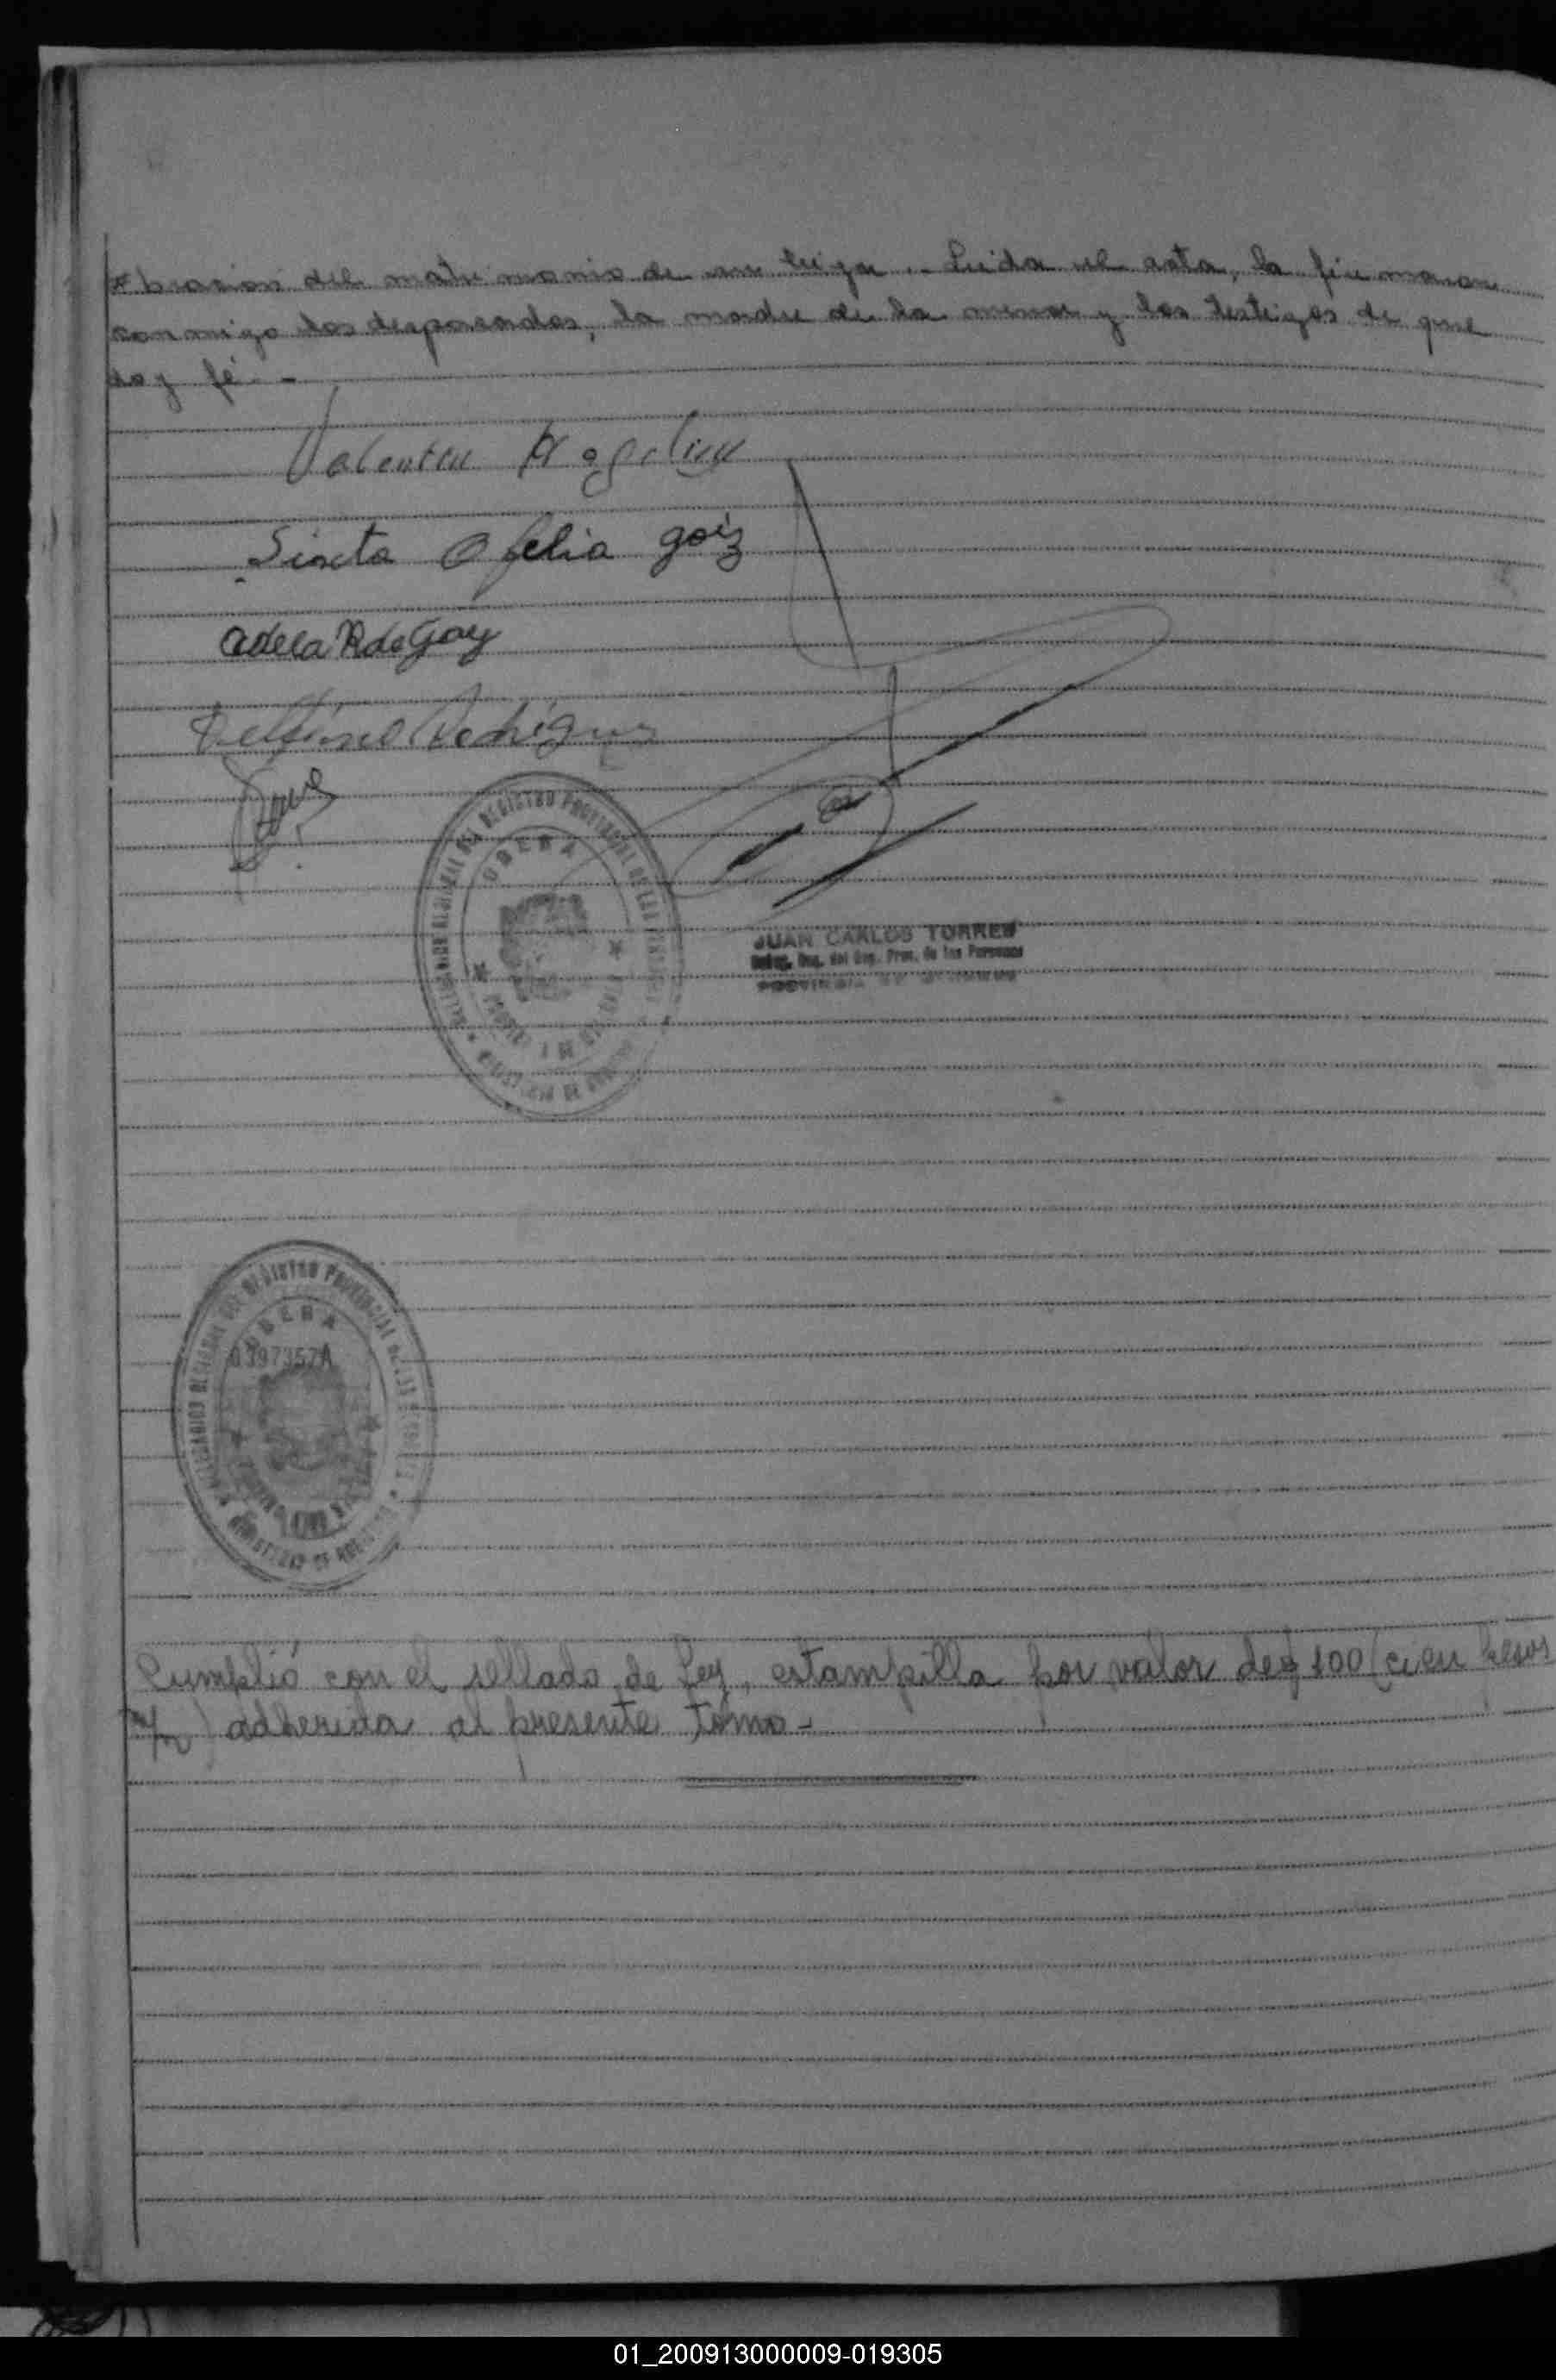 bración del matrimonio de su hija .- Leida el acta, la firmaron
conmigo los desposados, la madre de la menor y los testigos de que
doy fé. -
Valentin
Sixta Ofelia goiz
adela R de Goy
Delfino Rodriguez
REGISTRO PROVINCIAL DE LAS
OBERA
JUAN CARLOS TORRES
Deleg. Reg. del Reg. Prov. de las Personas
PROVINCIA DE MISIONES
REGISTRO PROVINCIAL DE LAS
OBERA
0397357A
Cumplió con el sellado de Ley, estampilla por valor de $ 100 (cien pesos
m/n) adherida al presente tomo -
01_200913000009-019305